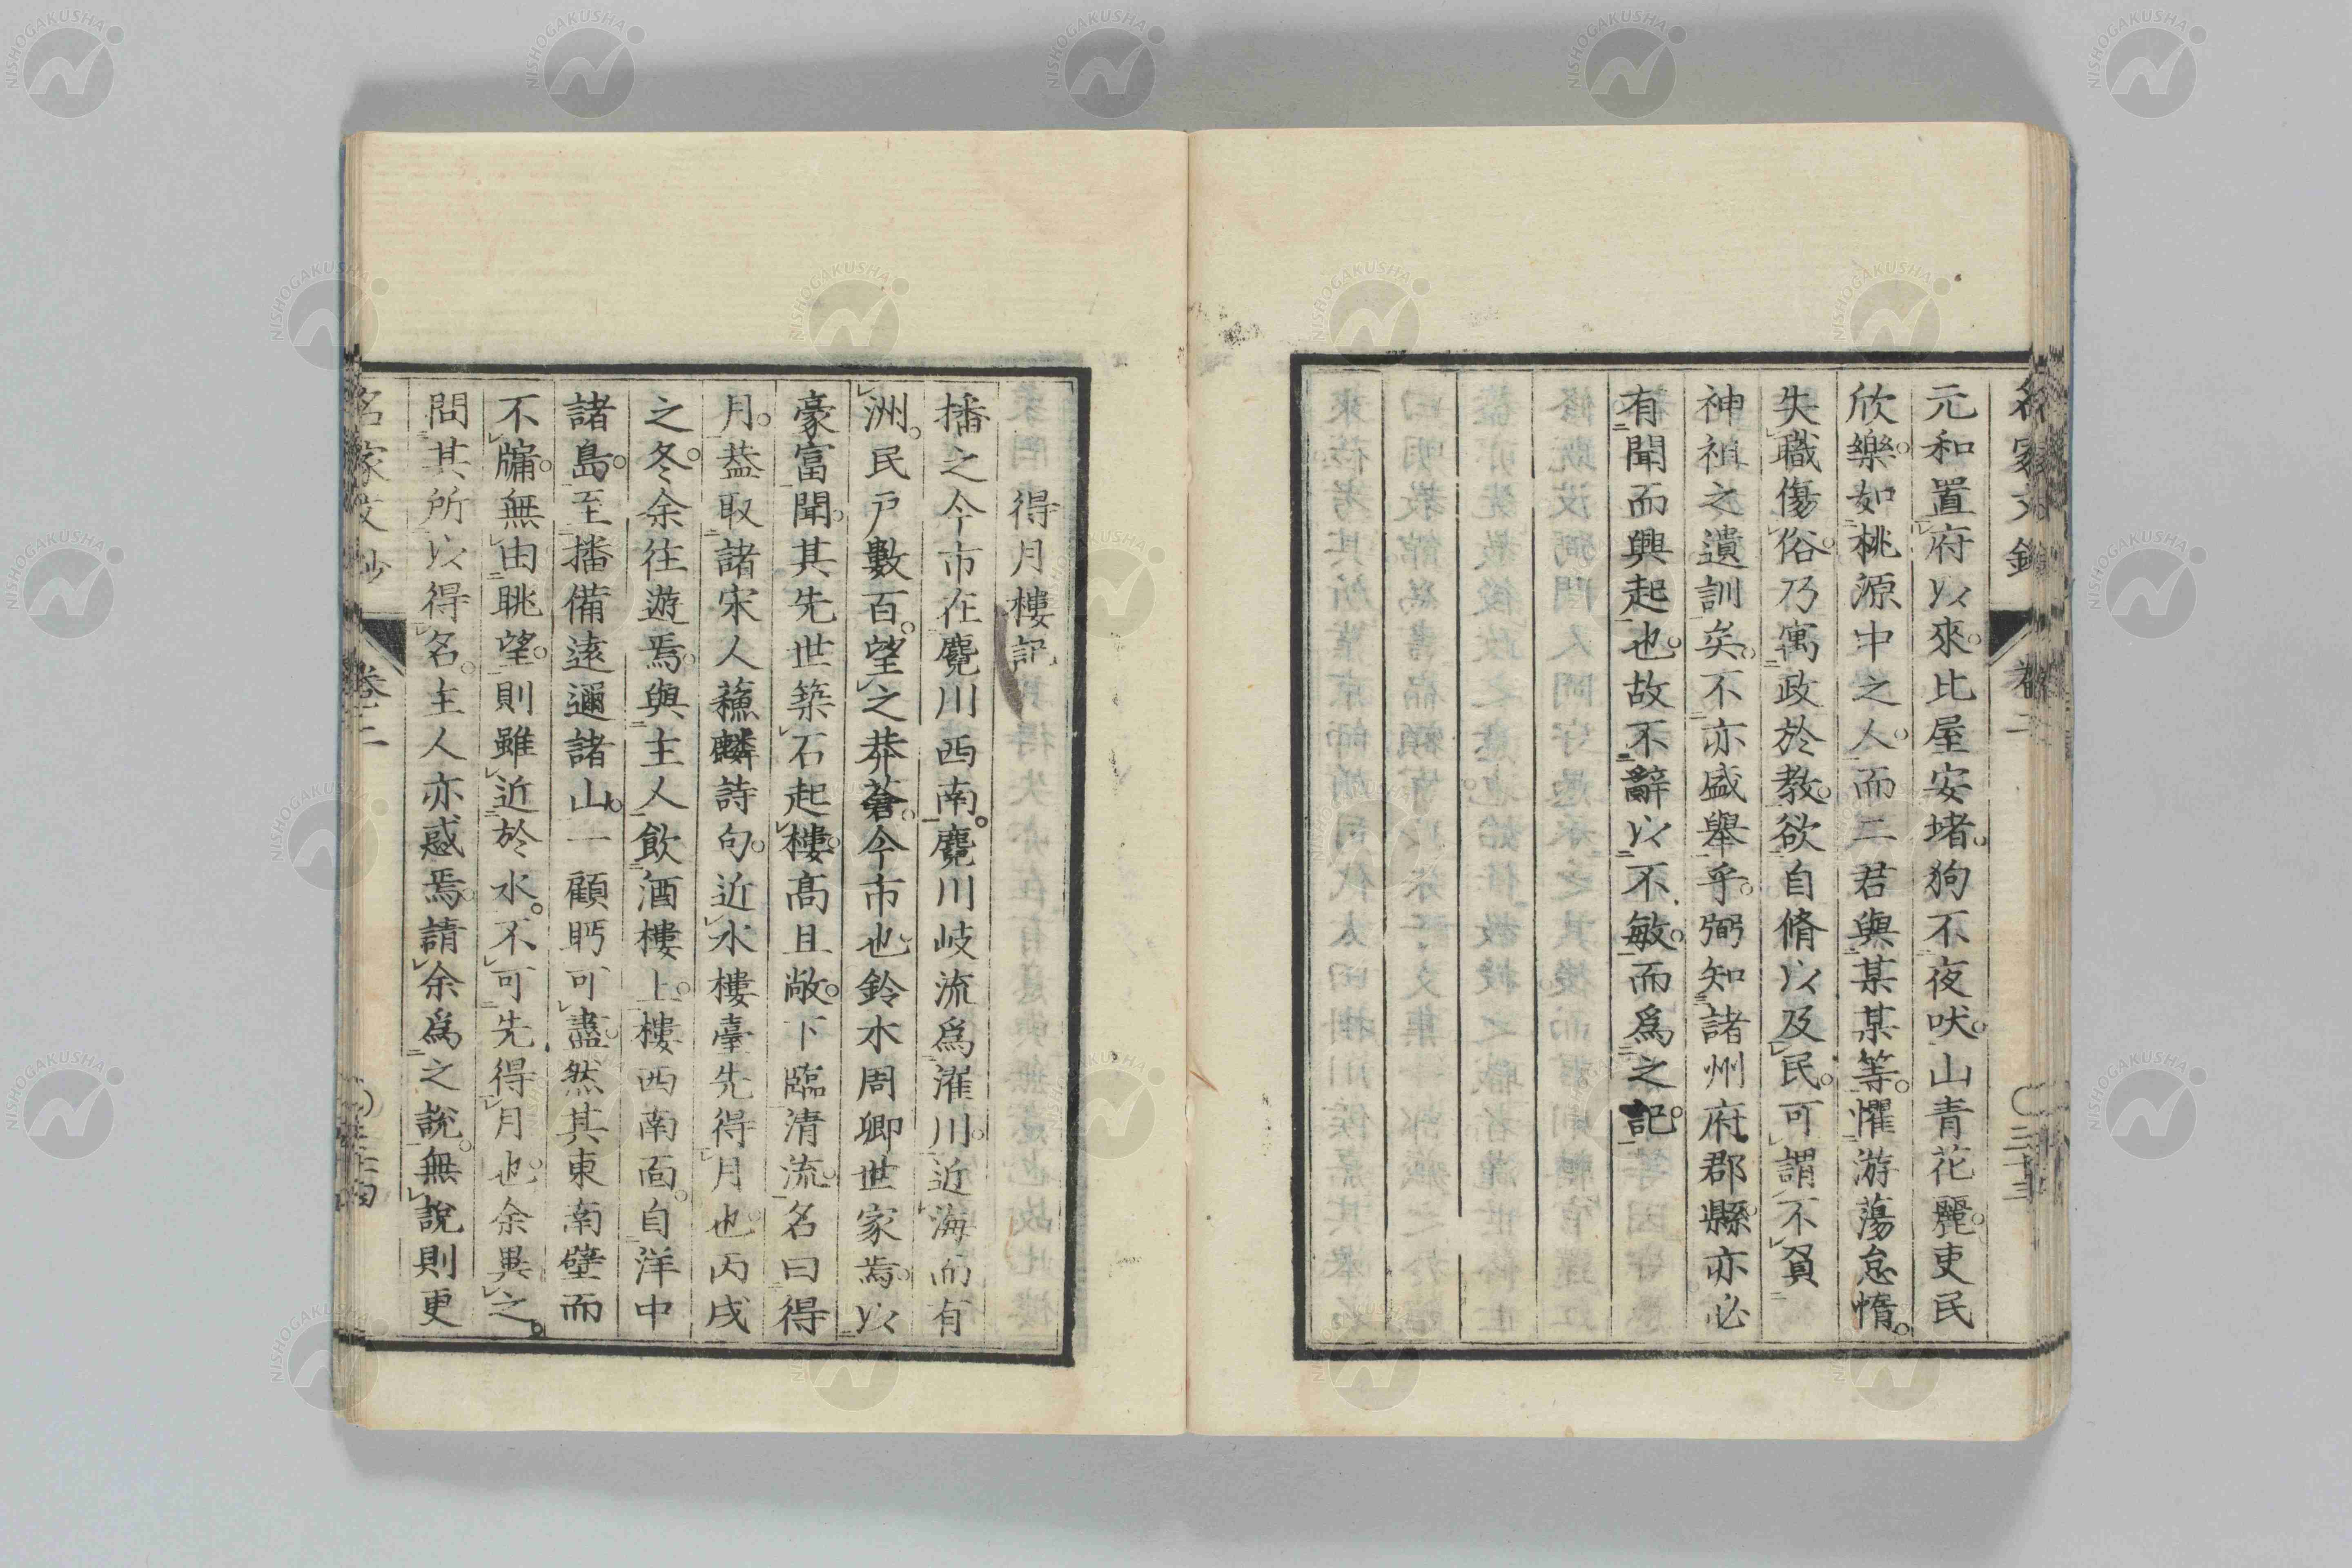 元和置府以來。比屋安堵。狗不夜吠。山青花麗。吏民
欣樂。如桃源中之人。而二君與某某等。懼游蕩怠惰。
失職傷俗。乃寓政於教。欲自脩以及民。可謂不負
神祖之遺訓矣。不亦盛舉乎。弼知諸州府郡縣。亦必
有聞而興起也。故不辭以不敏。而爲之記。
得月樓記
播之今市在麑川西南。麑川岐流爲濯川。近海而有
洲。民戶數百。望之莽蒼。今市也。鈴木周卿世家焉。以
豪富聞。其先世築石起樓。樓高且敞。下臨清流。名曰得
月。葢取諸宋人蘓麟詩句。近水樓臺先得月也。丙戌
之冬。余往遊焉。與主人飲酒樓上。樓西南面。自洋中
諸島。至播備遠邇諸山。一顧眄可盡。然其東南壁而
不牖。無由眺望。則雖近於水。不可先得月也。余異之。
問其所以得名。主人亦惑焉。請余爲之說。無說則更
名家文鈔
卷二
三十三
NISHOGAKUSHA